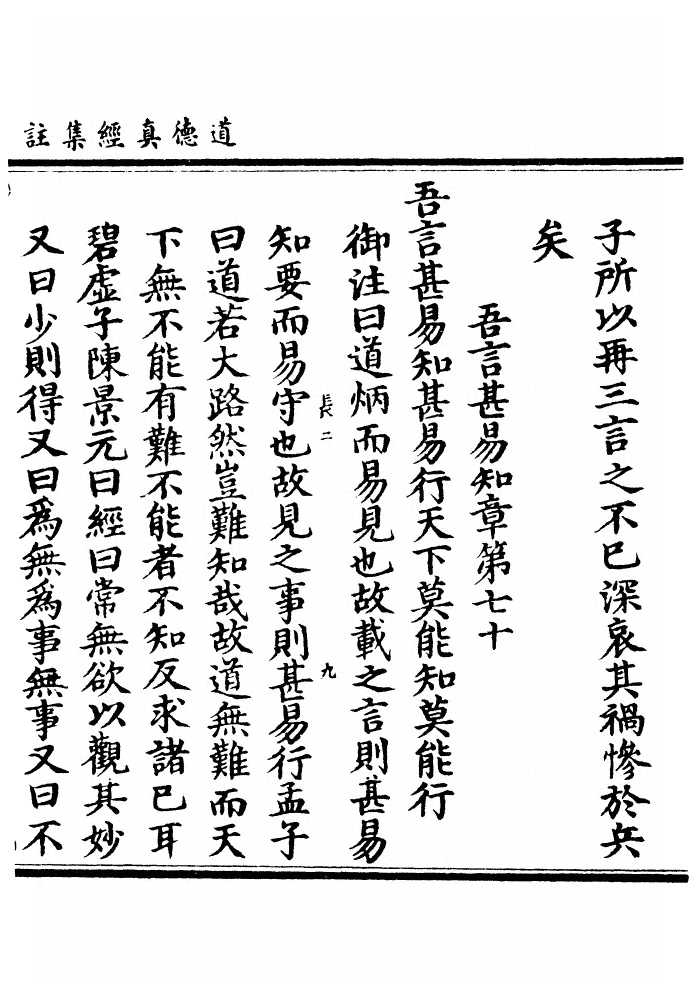 道德真經集註
子所以再三言之不已深哀其禍慘於兵
矣
吾言甚易知章第七十
吾言甚易知甚易行天下莫能知莫能行
御注曰道炳而易見也故載之言則甚易
長二
九
知要而易守也故見之事則甚易行孟子
曰道若大路然豈難知哉故道無難而天
下無不能有難不能者不知反求諸已耳
碧虛子陳景元曰經曰常無欲以觀其妙
又曰少則得又曰為無為事無事又曰不